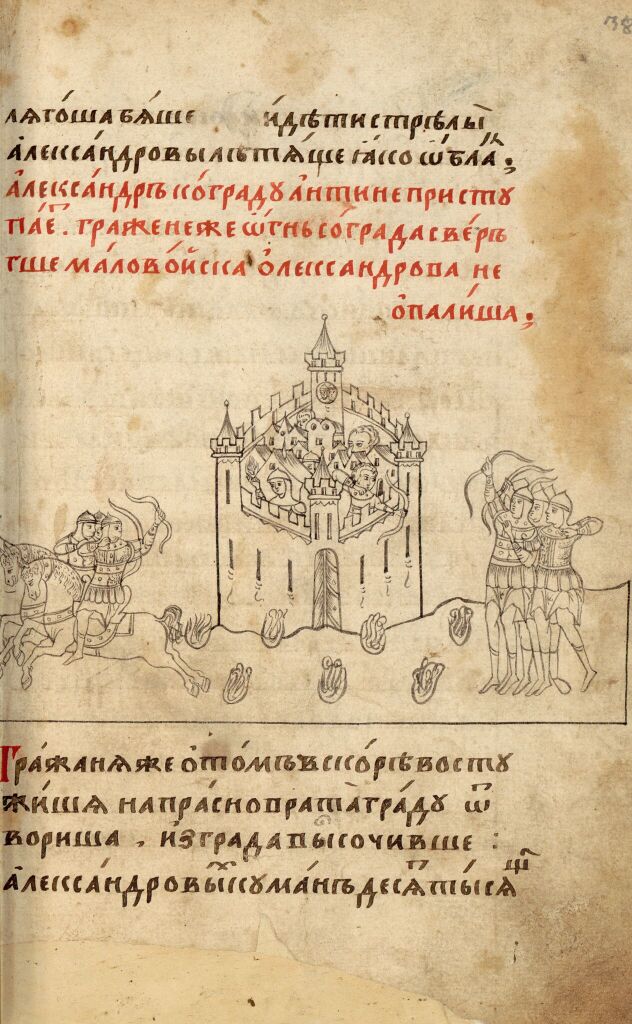 38
лѧто́ша бѧ́ше и҆дѣ́ти стрѣлы̀
а҆леѯа́ндровы лѣтѧ́ще ꙗ҆ко ѡ҆́бла́к;
а҆леѯа́ндръ ко́ граду а҆́нтине присту
па́еⷮ. гра́жене же ѡ҆́гнь со́ града све́ръ
гше мало во́йска о҆леѯандрова не
о҆пали́ша;
Гра́жанѧ же о҆ то́мъ вско́рѣ восту
жи́шѧ напра́сно врата̀ гра́ду ѿ
вориша. и҆з града вы́сочивше:
а҆леѯа́ндровыⷯ кума́нъ десѧ́ⷮ ты́сѧщ